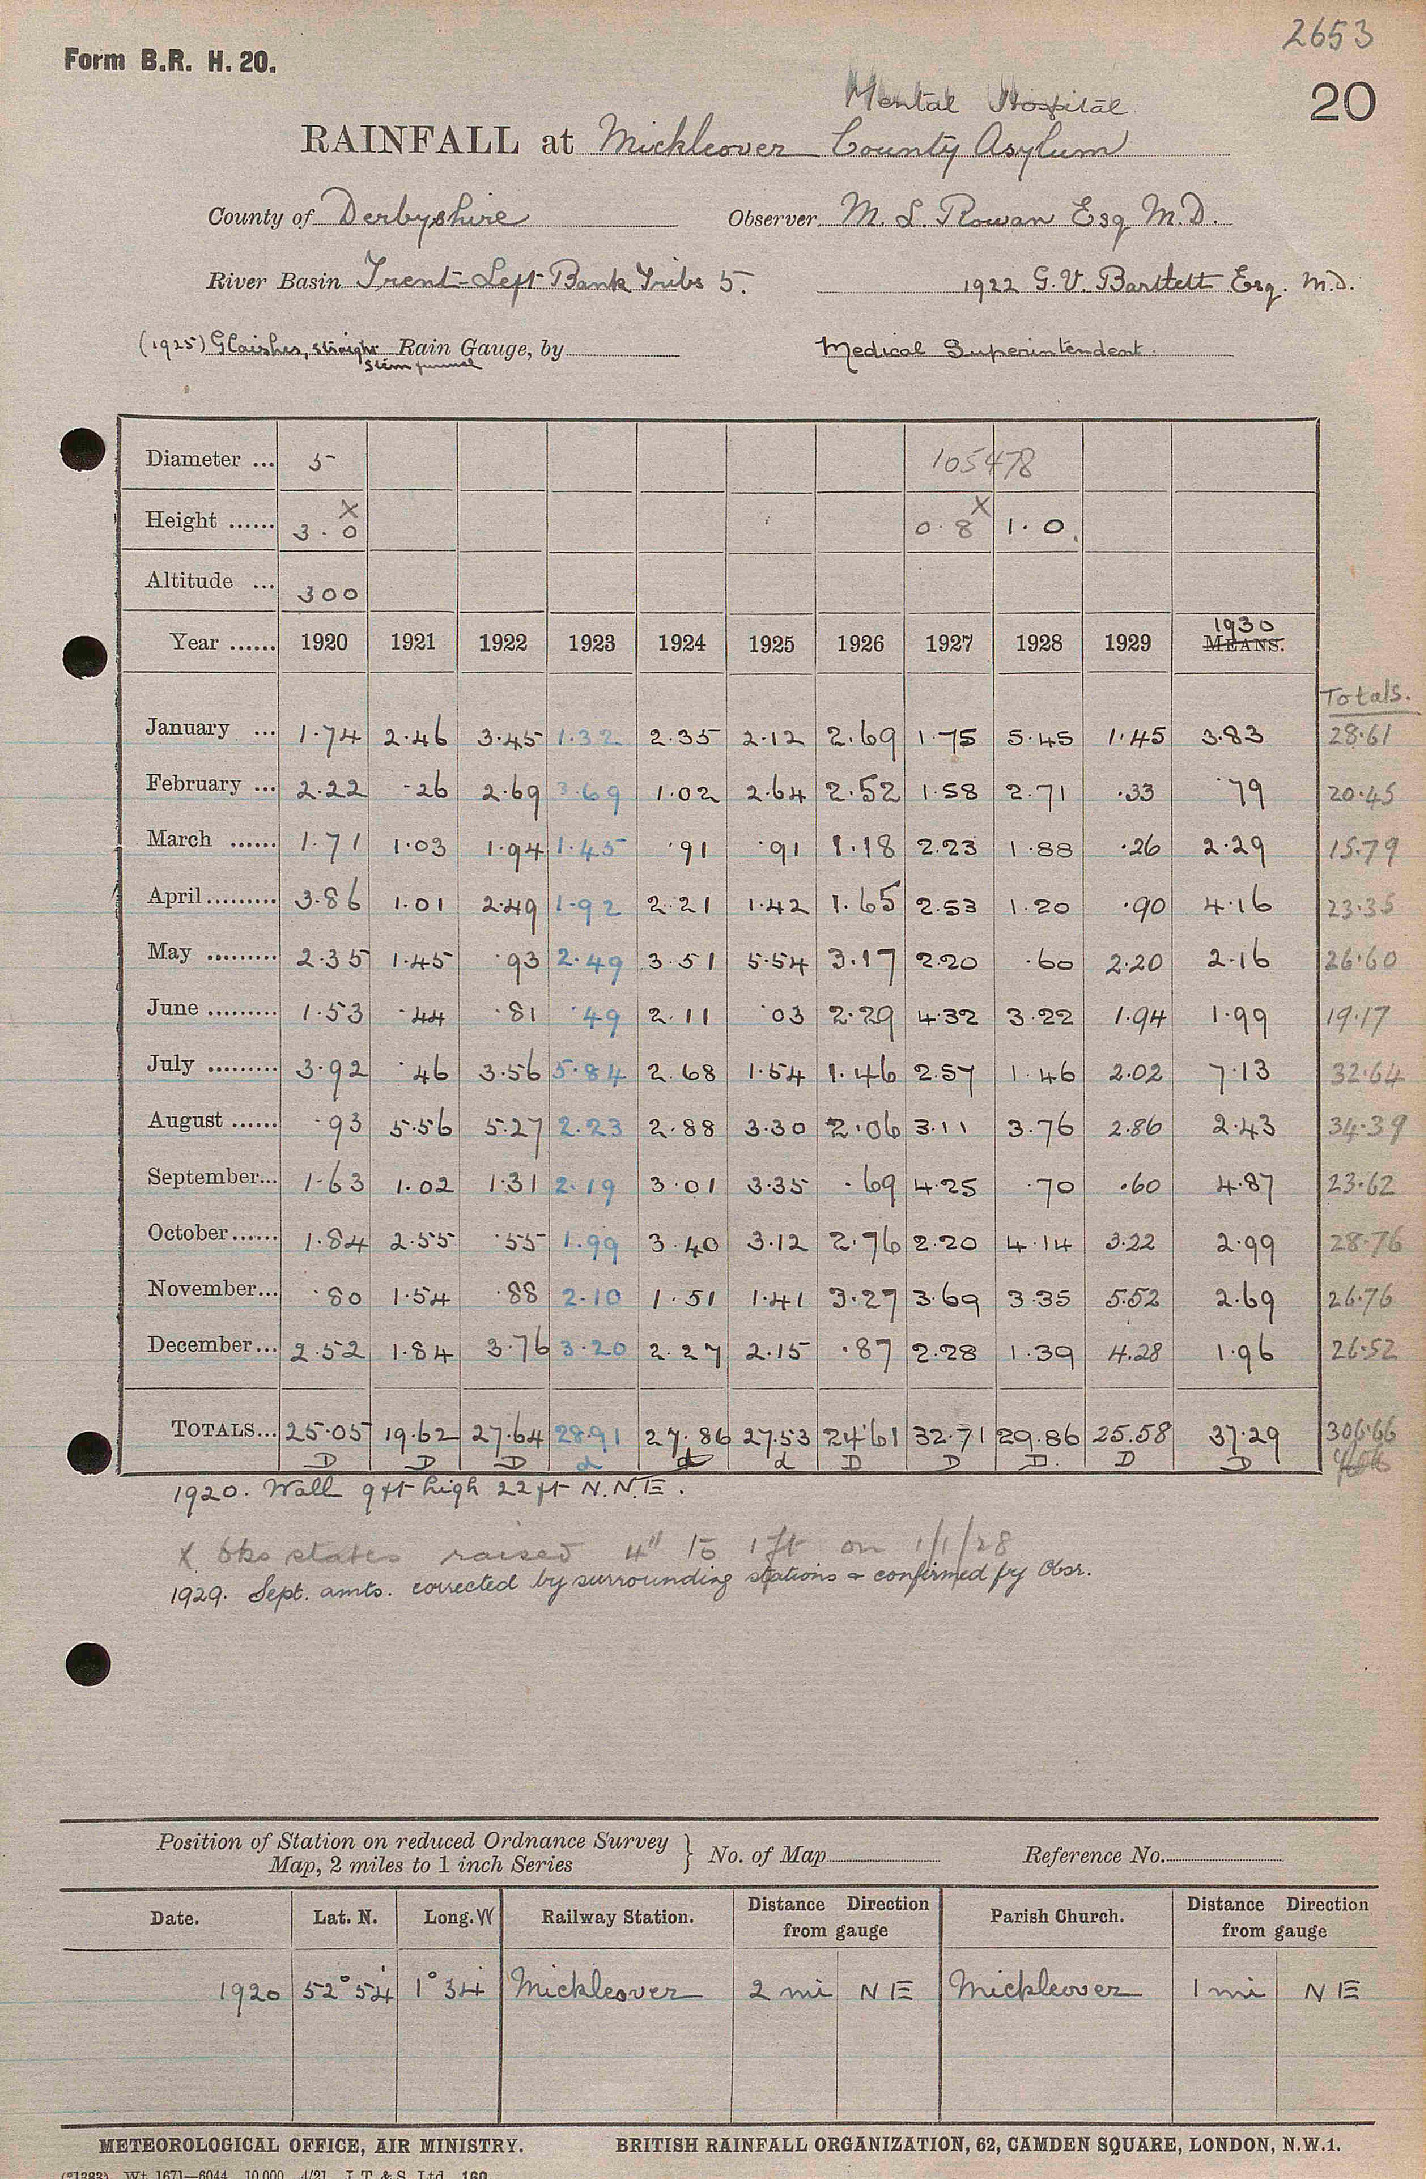 2653
Form B.R. H. 20.
20
Mental Hospital
RAINFALL at Mickleover County Asylum
County of Derbyshire Observer M. L. Rowan Esq M.D.
River Basin Trent-Left Bank Tribs 5. 1922 G. V. Bartlett Esq. M.D.
(1925) Glaisher, straight Rain Gauge, by Medical Superintendent.
Stem funnel
Diameter ... 5 105478
Height ...... 3.0 X 0.8 X 1.0
Altitude ... 300
Year ...... 1920 1921 1922 1923 1924 1925 1926 1927 1928 1929 1930 MEANS.
Totals.
January ... 1.74 2.46 3.45 1.32 2.35 2.12 2.69 1.75 5.45 1.45 3.83 28.61
February ... 2.22 .26 2.69 3.69 1.02 2.64 2.52 1.58 2.71 .33 .79 20.45
March ...... 1.71 1.03 1.94 1.45 .91 .91 1.18 2.23 1.88 .26 2.29 15.79
April......... 3.86 1.01 2.49 1.92 2.21 1.42 1.65 2.53 1.20 .90 4.16 23.35
May ......... 2.35 1.45 .93 2.49 3.51 5.54 3.17 2.20 .60 2.20 2.16 26.60
June ......... 1.53 .44 .81 .49 2.11 .03 2.29 4.32 3.22 1.94 1.99 19.17
July ......... 3.92 .46 3.56 5.84 2.68 1.54 1.46 2.57 1.46 2.02 7.13 32.64
August ...... .93 5.56 5.27 2.23 2.88 3.30 2.06 3.11 3.76 2.86 2.43 34.39
September... 1.63 1.02 1.31 2.19 3.01 3.35 .69 4.25 .70 .60 4.87 23.62
October...... 1.84 2.55 .55 1.99 3.40 3.12 2.76 2.20 4.14 3.22 2.99 28.76
November... .80 1.54 .88 2.10 1.51 1.41 3.27 3.69 3.35 5.52 2.69 26.76
December... 2.52 1.84 3.76 3.20 2.27 2.15 .87 2.28 1.39 4.28 1.96 26.52
TOTALS... 25.05 19.62 27.64 28.91 27.86 27.53 24.61 32.71 29.86 25.58 37.29 306.66
D D D d d d D D D. D D
1920. Wall 9 ft high 22 ft N.N.E.
X Obs states raised 4" to 1 ft on 1/1/28
1929. Sept. amts. corrected by surrounding stations & confirmed by Obsr.
Position of Station on reduced Ordnance Survey
Map, 2 miles to 1 inch Series } No. of Map Reference No.
Date. Lat. N. Long. W Railway Station. Distance Direction from gauge Parish Church. Distance Direction from gauge
1920 52° 54' 1° 34' Mickleover 2 mi NE Mickleover 1 mi NE
METEOROLOGICAL OFFICE, AIR MINISTRY. BRITISH RAINFALL ORGANIZATION, 62, CAMDEN SQUARE, LONDON, N.W.1.
(*1383) Wt 1671—6044 10,000 4/21 J. T. & S. Ltd. 160